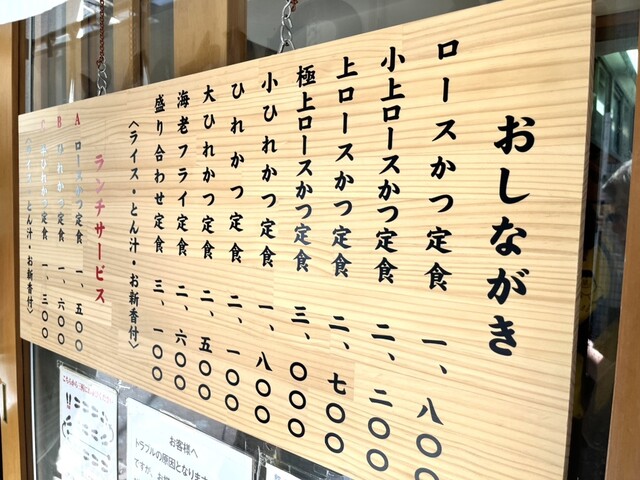 おしながき
ロースかつ定食 一、八〇〇
小上ロースかつ定食 二、二〇〇
上ロースかつ定食 二、七〇〇
極上ロースかつ定食 三、〇〇〇
小ひれかつ定食 一、八〇〇
ひれかつ定食 二、一〇〇
大ひれかつ定食 二、五〇〇
海老フライ定食 二、六〇〇
盛り合わせ定食 三、一〇〇
〈ライス・とん汁・お新香付〉
ランチサービス
A ロースかつ定食 一、五〇〇
B ひれかつ定食 一、六〇〇
C ひれかつ定食 一、三〇〇
〈ライス・とん汁・お新香付〉
お客様へ
トラブルの原因となります
ですが、お